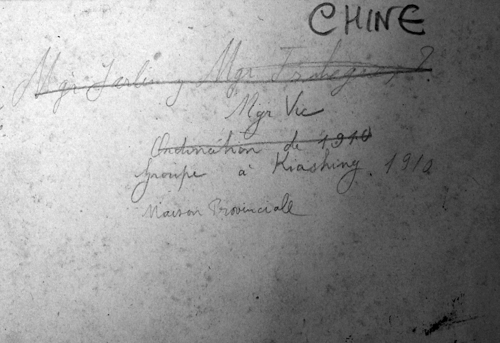 CHINE
Mgr Jarlin, Mgr ?
Mgr Vic
Ordination de 1910
groupe à Kiashing. 1910
Maison Provinciale